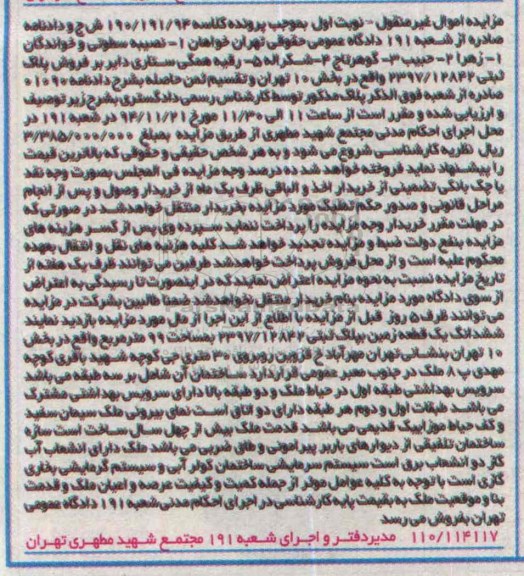 مزایده اموال غیرمنقول - نوبت اول بموجب پرونده کلاسه ۱۹۰/۱۹۱/۹۴ ش ج و دادنامه
صادره از شعبه ۱۹۱ دادگاه عمومی حقوقی تهران خواهان ۱- نصیبه سطوتی و خواندگان
۱- زهرا ۲- حبیب ۳- گوهرتاج ۴- شکراله ۵- رقیه همگی ستاری دایر بر فروش پلاک
ثبتی ۲۳۹۷/۱۲۸۴۲ واقع در بخش ۱۰ تهران و تقسیم ثمن حاصله بشرح دادنامه ۰۱۰۹۰
صادره از شعبه فوق الذکر پلاک مذکور توسط کارشناس رسمی دادگستری بشرح زیر توصیف
و ارزیابی شده و مقرر است از ساعت ۱۱ الی ۱۱/۳۰ مورخ ۹۴/۱۱/۲۱ در شعبه ۱۹۱ در
محل اجرای احکام مدنی مجتمع شهید مطهری از طریق مزایده بمبلغ ۳/۳۸۵/۰۰۰/۰۰۰
ریال نظریه کارشناسی شروع می شود و به هر شخص حقیقی و حقوقی که بالاترین قیمت
را پیشنهاد نماید فروخته خواهد شد ده درصد وجه مزایده فی المجلس بصورت وجه نقد
یا چک بانکی تضمینی از خریدار اخذ و الباقی ظرف یک ماه از خریدار وصول و پس از انجام
مراحل قانونی و صدور حکم تملیک مورد مزایده بخریدار منتقل خواهدشد در صورتی که
در مهلت مقرر خریدار وجه مزایده را پرداخت ننماید سپرده وی پس از کسر هزینه های
مزایده بنفع دولت ضبط و مزایده تجدید خواهد شد کلیه هزینه های نقل و انتقال بعهده
محکوم علیه است و از محل فروش پرداخت خواهدشد طرفین می توانند ظرف یک هفته از
تاریخ مزایده نسبت به نحوه مزایده اعتراض نمایند که در اینصورت تا رسیدگی به اعتراض
از سوی دادگاه مورد مزایده بنام خریدار منتقل نخواهدشد ضمنا طالبین بشرکت در مزایده
می توانند ظرف ۵ روز قبل از مزایده با اطلاع از این اجرا از مال مورد مزایده بازدید نمایند
ششدانگ یک قطعه زمین بپلاک ثبتی ۲۳۹۷/۱۲۸۴۲ بمساحت ۹۹ مترمربع واقع در بخش
۱۰ تهران بنشانی تهران مهرآباد خ قزوین روبروی ۳۰ متری جی کوچه شهید باقری کوچه
مهدی پ ۸ ملک در جنوب معبر عمومی قرار دارد ساختمان آن شامل بر سه طبقه می باشد
سرویس بهداشتی طبقه اول در حیاط ملک و دو طبقه بالا دارای سرویس بهداشتی مشترک
می باشد طبقات اول و دوم هر طبقه دارای دو اتاق است نمای بیرونی ملک سیمان سفید
و کف حیاط موزاییک قدیمی می باشد قدمت ملک بیش از چهل سال ساخت است سازه
ساختمان تلفیقی از دیوارهای باربر پیرامونی و طاق ضربی می باشد ملک دارای انشعاب آب
گاز دو انشعاب برق است سیستم سرمایشی ساختمان کولر آبی و سیستم گرمایشی بخاری
گازی است با توجه به کلیه عوامل موثر از جمله کمیت و کیفیت عرصه و اعیان ملک و قدمت
بنا و موقعیت ملک به قیمت پایه کارشناسی در اجرای احکام مدنی شعبه ۱۹۱ دادگاه عمومی
تهران بفروش می رسد
۱۱۰/۱۱۴۱۱۷ مدیردفتر و اجرای شعبه ۱۹۱ مجتمع شهید مطهری تهران